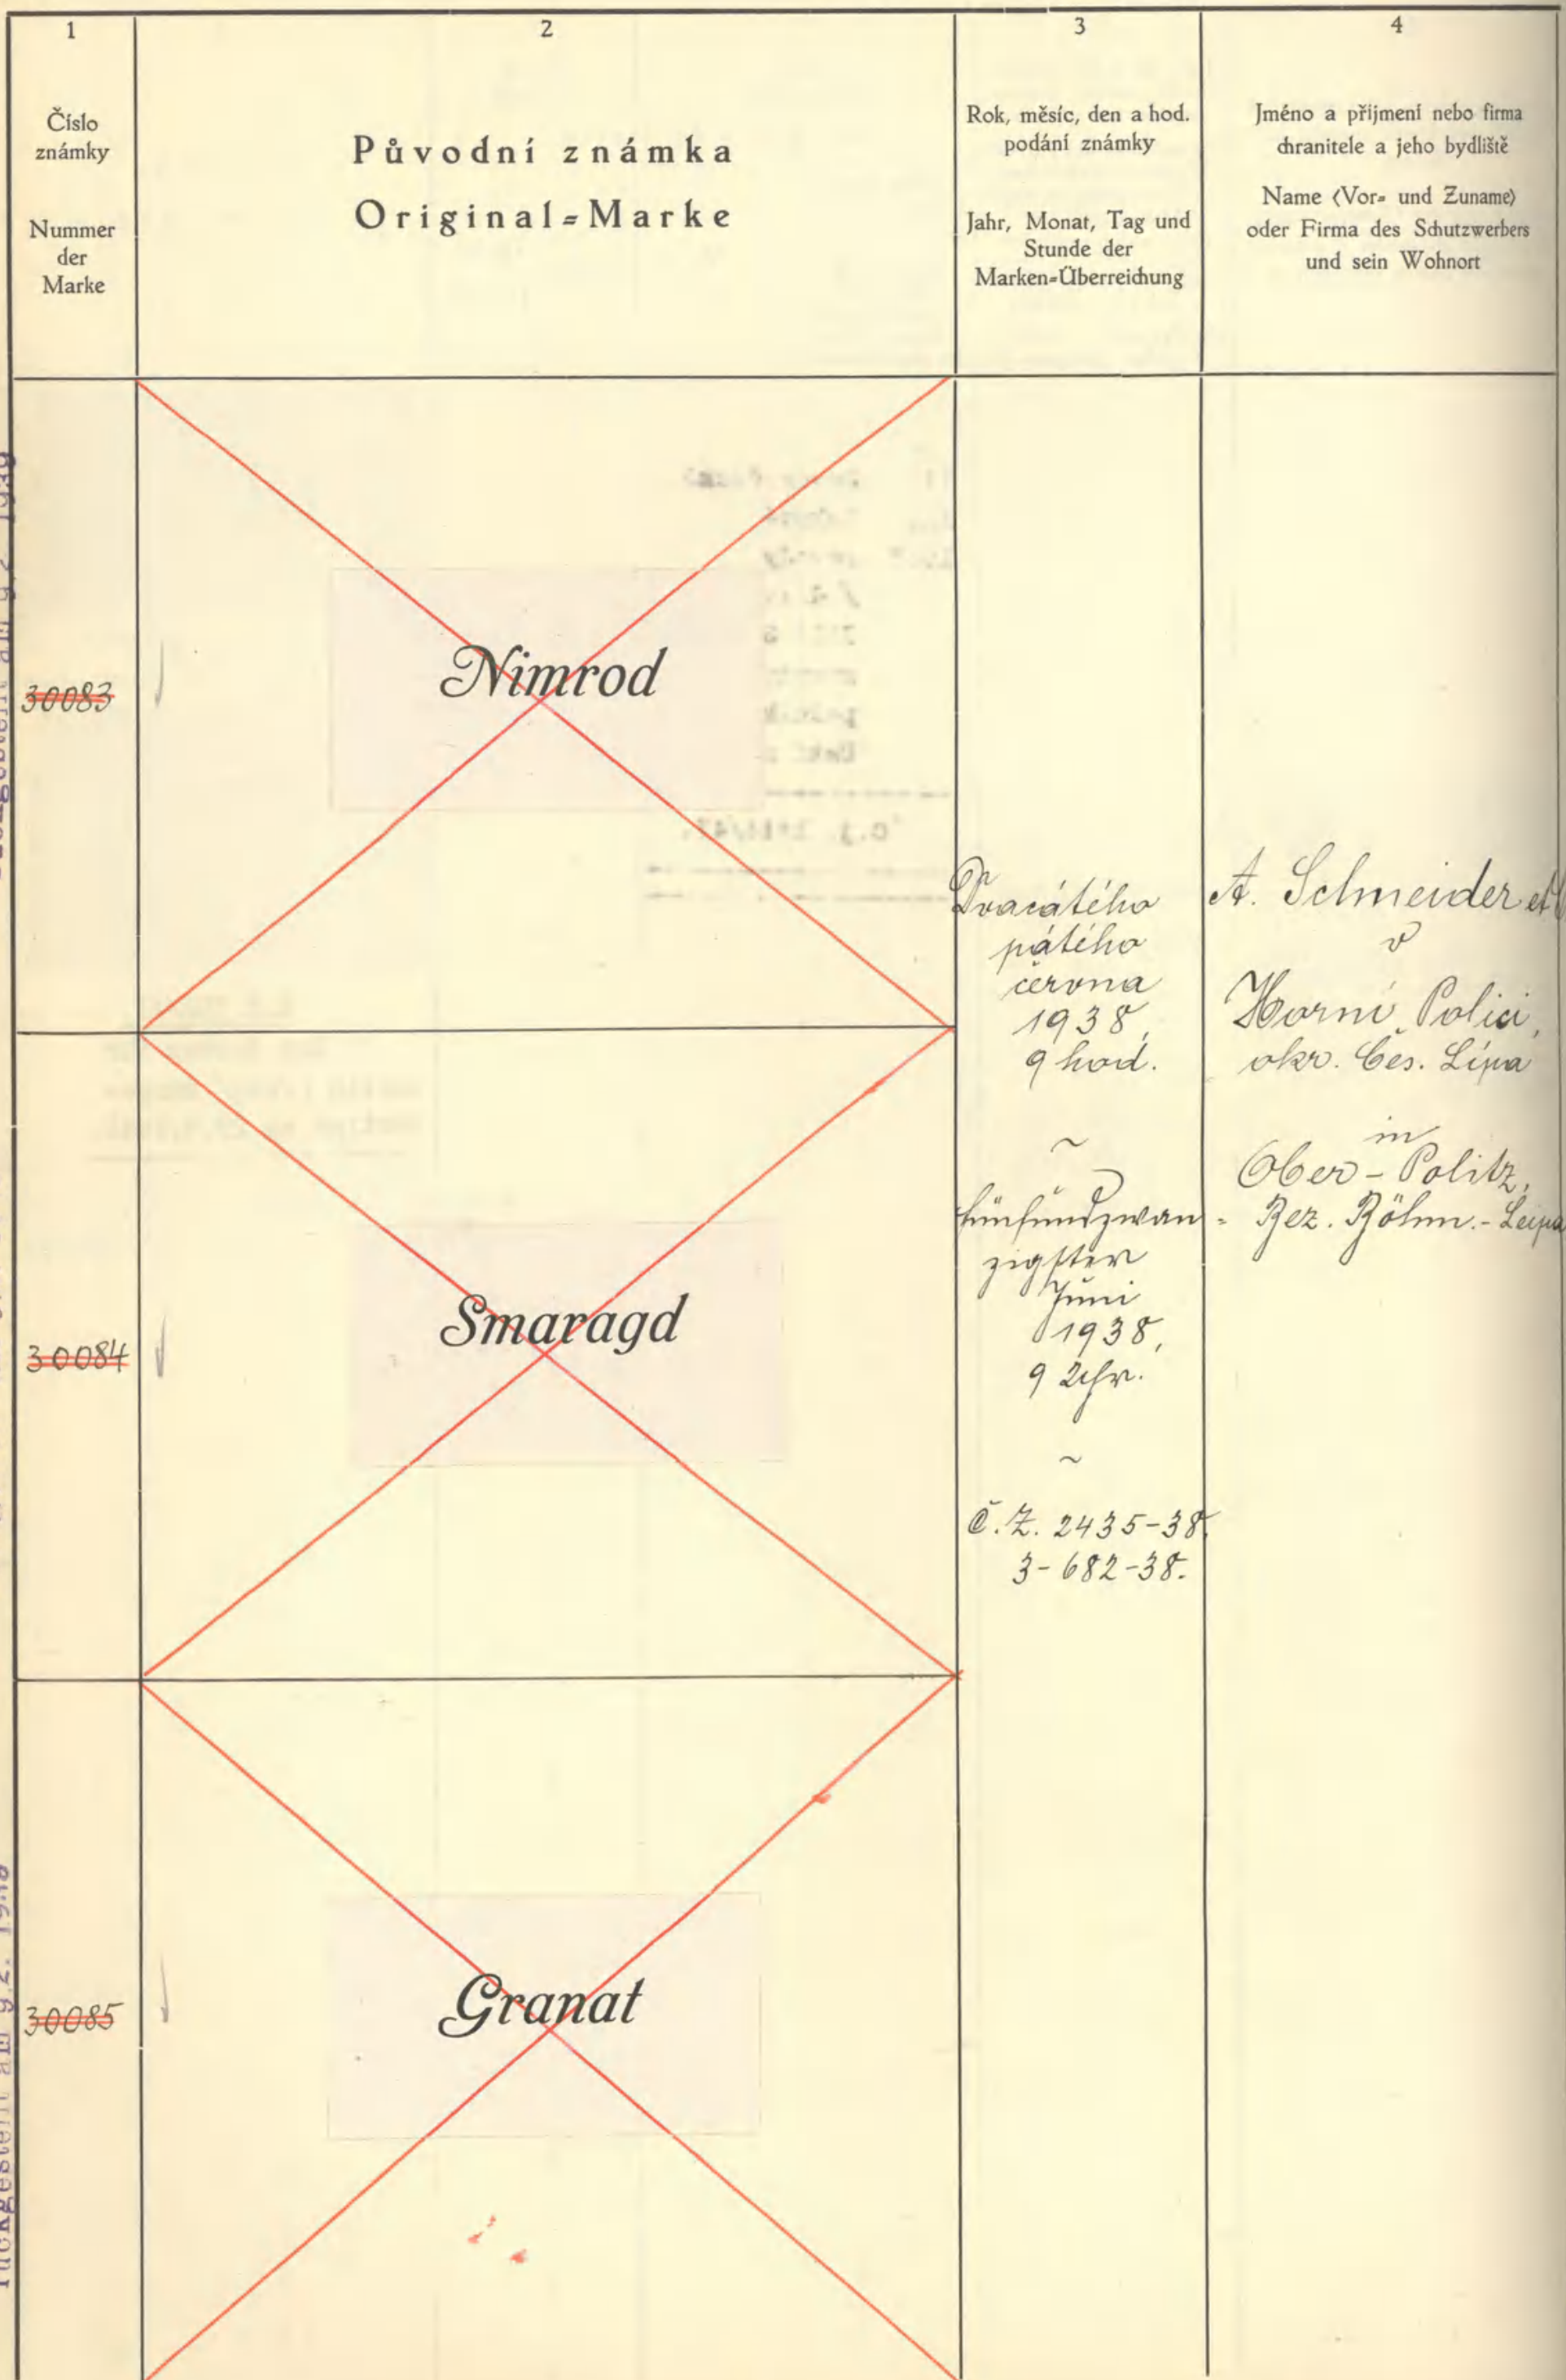 1
Číslo
známky
Nummer
der
Marke
2
Původní známka
Original-Marke
3
Rok, měsíc, den a hod.
podání známky
Jahr, Monat, Tag und
Stunde der
Marken-Überreichung
4
Jméno a přijmení nebo firma
chranitele a jeho bydliště
Name (Vor- und Zuname)
oder Firma des Schutzwerbers
und sein Wohnort
30083
Nimrod
30084
Smaragd
30085
Granat
Dvacátého
pátého
června
1938,
9 hod.
~
fünfundzwan-
zigster
Juni
1938,
9 Uhr.
~
Č.Z. 2435-38.
3-682-38.
A. Schneider et
v
Horní Polici,
okr. Čes. Lípa
in
Ober-Politz,
Bez. Böhm.-Leipa
am 9.2. 1939
am 9.2. 1940